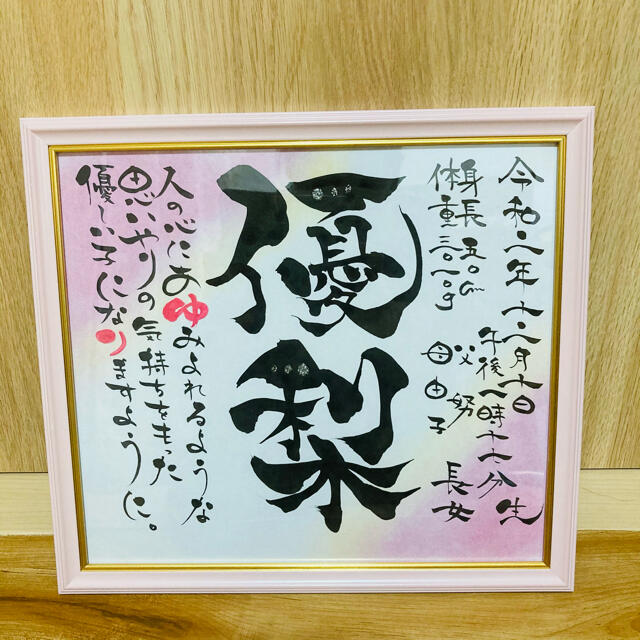 令和二年十二月十日
午後一時十七分生
身長 五〇cm
体重 三〇二〇g
父 努 長女
母 由子
優梨
人の心にあゆみよれるような
思いやりの気持ちをもった
優しい子になりますように。